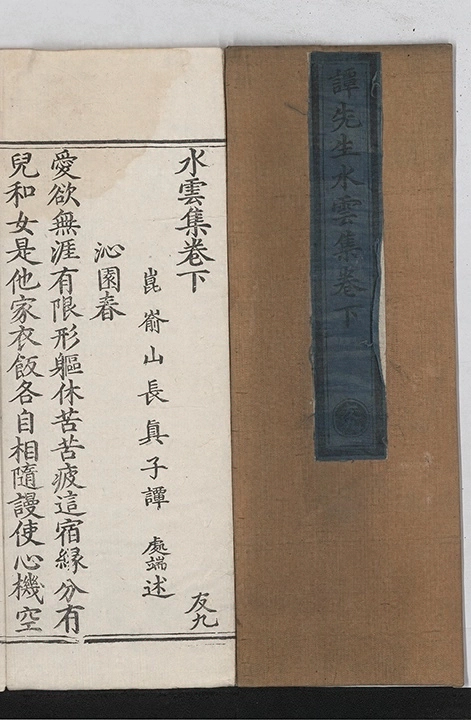 譚先生水雲集卷下
友九
水雲集卷下
崑嵛山長眞子譚處端述
沁園春
愛欲無涯有限形軀休苦苦疲這宿緣分有
兒和女是他家衣飯各自相隨謾使心機空